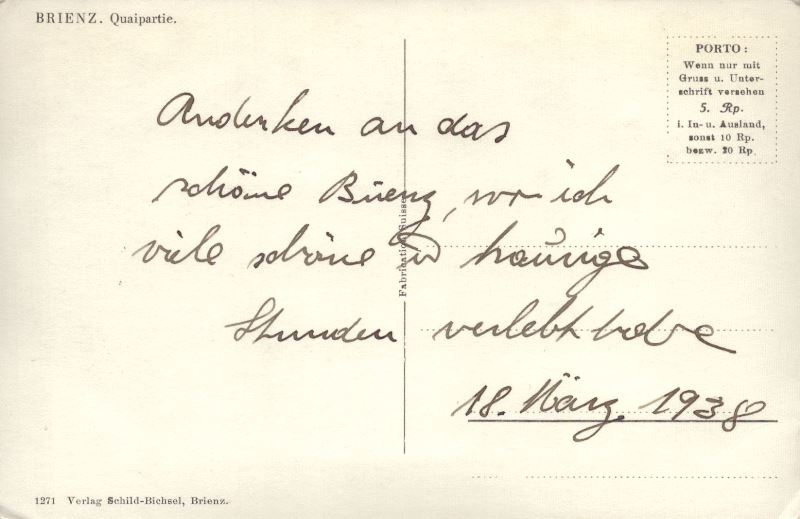 BRIENZ. Quaipartie.
PORTO:
Wenn nur mit
Gruss u. Unter-
schrift versehen
5. Rp.
i. In- u. Ausland,
sonst 10 Rp.
bezw. 20 Rp.
Andenken an das
schöne Brienz, wo ich
viele schöne u traurige
Stunden verlebt habe
18. März 1938
Fabrication Suisse
1271 Verlag Schild-Bichsel, Brienz.